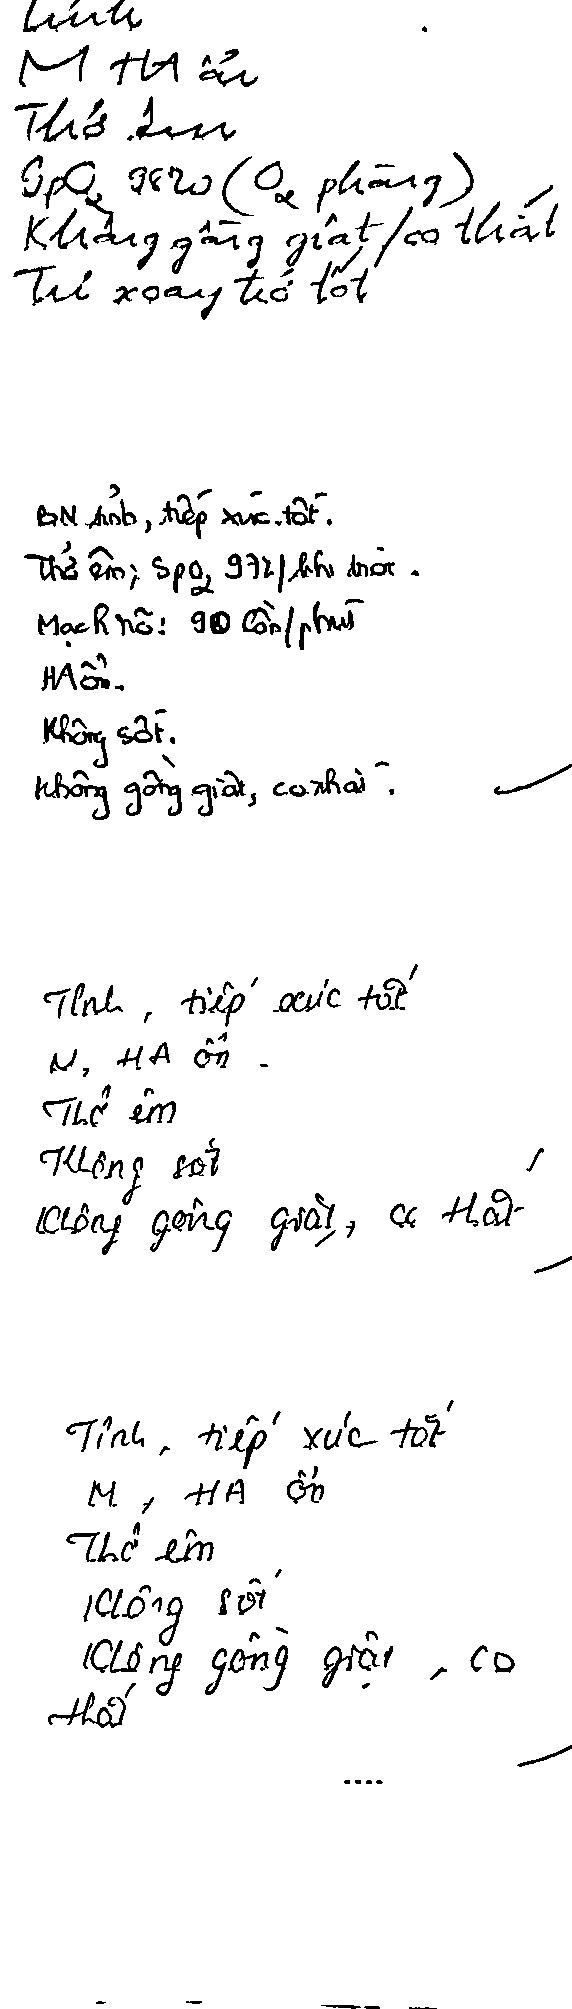 Tỉnh
M HA ổn
Thở êm
SpO2 98% (O2 phòng)
Không gồng giật/co thắt
Tự xoay trở tốt
BN tỉnh, tiếp xúc tốt.
Thở êm; SpO2 97%/khí trời.
Mạch rõ: 90 lần/phút
HA ổn.
Không sốt.
Không gồng giật, co thắt.
Tỉnh, tiếp xúc tốt
M, HA ổn.
Thở êm
Không sốt
Không gồng giật, co thắt
Tỉnh, tiếp xúc tốt
M, HA ổn
Thở êm
Không sốt
Không gồng giật, co
thắt
....